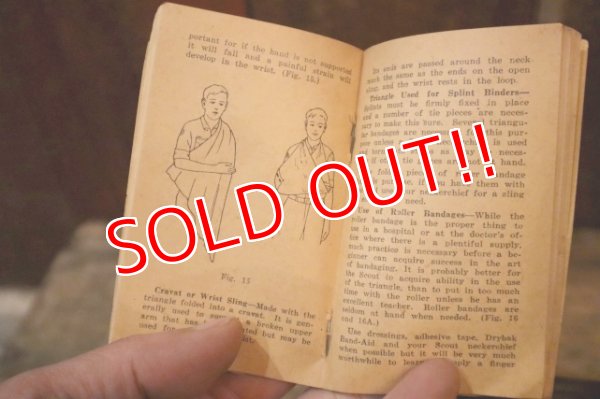 portant for if the hand is not supported
it will fall and a painful strain will
develop in the wrist. (Fig. 15.)
Fig. 15
Cravat or Wrist Sling—Made with the
triangle folded into a cravat. It is gen-
erally used to a broken upper
arm that has but may be
used for
Its ends are passed around the neck
much the same as the ends on the open
sling, and the wrist rests in the loop.
Triangle Used for Splint Binders—
Splints must be firmly fixed in place
and a number of tie pieces are neces-
sary to make this sure. Several triangu-
lar bandages are for this pur-
pose unless a is used
and torn as may neces-
if are hand.
folded pieces of bandage
this purpose, if you have them with
or neckerchief for a sling
need.
Use of Roller Bandages—While the
roller bandage is the proper thing to
use in a hospital or at the doctor's of-
fice where there is a plentiful supply,
much practice is necessary before a be-
ginner can acquire success in the art
of bandaging. It is probably better for
the Scout to acquire ability in the use
of the triangle, than to put in too much
time with the roller unless he has an
excellent teacher. Roller bandages are
seldom at hand when needed. (Fig. 16
and 16A.)
Use dressings, adhesive tape, Drybak
Band-Aid and your Scout neckerchief
when possible but it will be very much
worthwhile to learn apply a finger
SOLD OUT!!